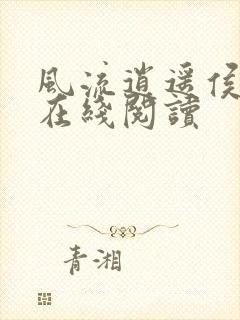 風流逍遥侯
在綫閱讀
青湘